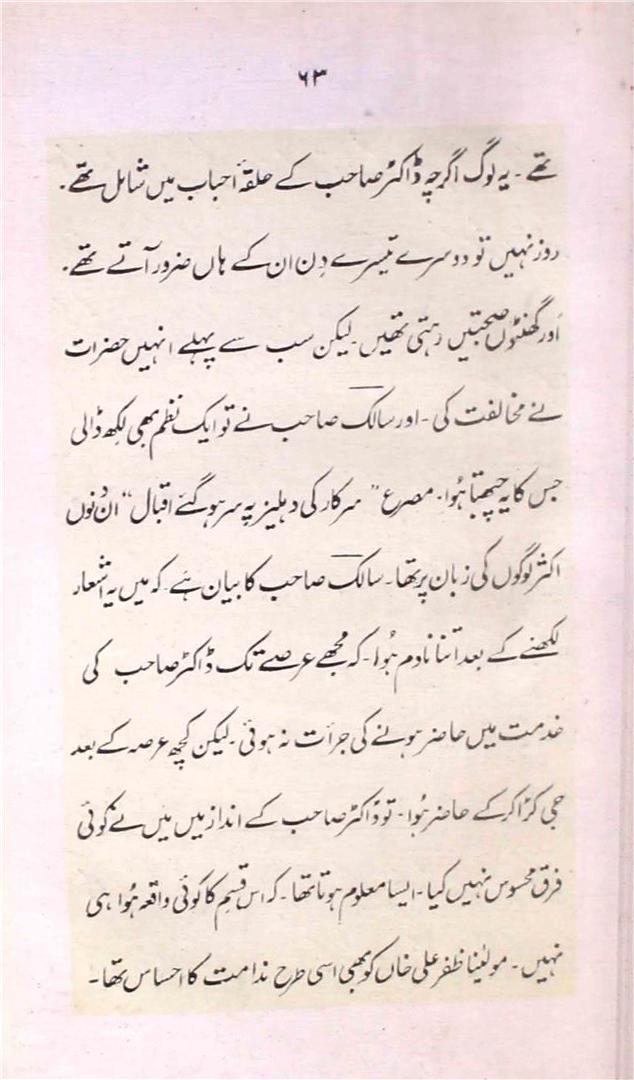 ۶۳
تھے ۔ یہ لوگ اگرچہ ڈاکٹر صاحب کے حلقۂ احباب میں شامل تھے ۔
روز نہیں تو دوسرے تیسرے دِن ان کے ہاں ضرور آتے تھے ۔
اَور گھنٹوں صحبتیں رہتی تھیں ۔ لیکن سب سے پہلے انہیں حضرات
نے مخالفت کی ۔ اور سالک صاحب نے تو ایک نظم بھی لِکھ ڈالی
جس کا یہ چھبتا ہُوا ۔ مصرع " سرکار کی دہلیز پہ سر ہو گئے اقبال " ان دُنوں
اکثر لوگوں کی زبان پر تھا ۔ سالک صاحب کا بیان ہے ۔ کہ میں یہ اشعار
لکھنے کے بعد اتنا نادم ہُوا ۔ کہ مجھے عرصے تک ڈاکٹر صاحب کی
خدمت میں حاضر ہونے کی جرأت نہ ہوئی ۔ لیکن کچھ عرصہ کے بعد
جی کڑا کر کے حاضر ہُوا ۔ تو ڈاکٹر صاحب کے انداز میں میں نے کوئی
فرق محسوس نہیں کیا ۔ ایسا معلوم ہوتا تھا ۔ کہ اس قسِم کا کوئی واقعہ ہُوا ہی
نہیں ۔ مولٰینا ظفر علی خاں کو بھی اسی طرح ندامت کا احساس تھا ۔